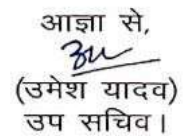 आज्ञा से,
(उमेश यादव)
उप सचिव।